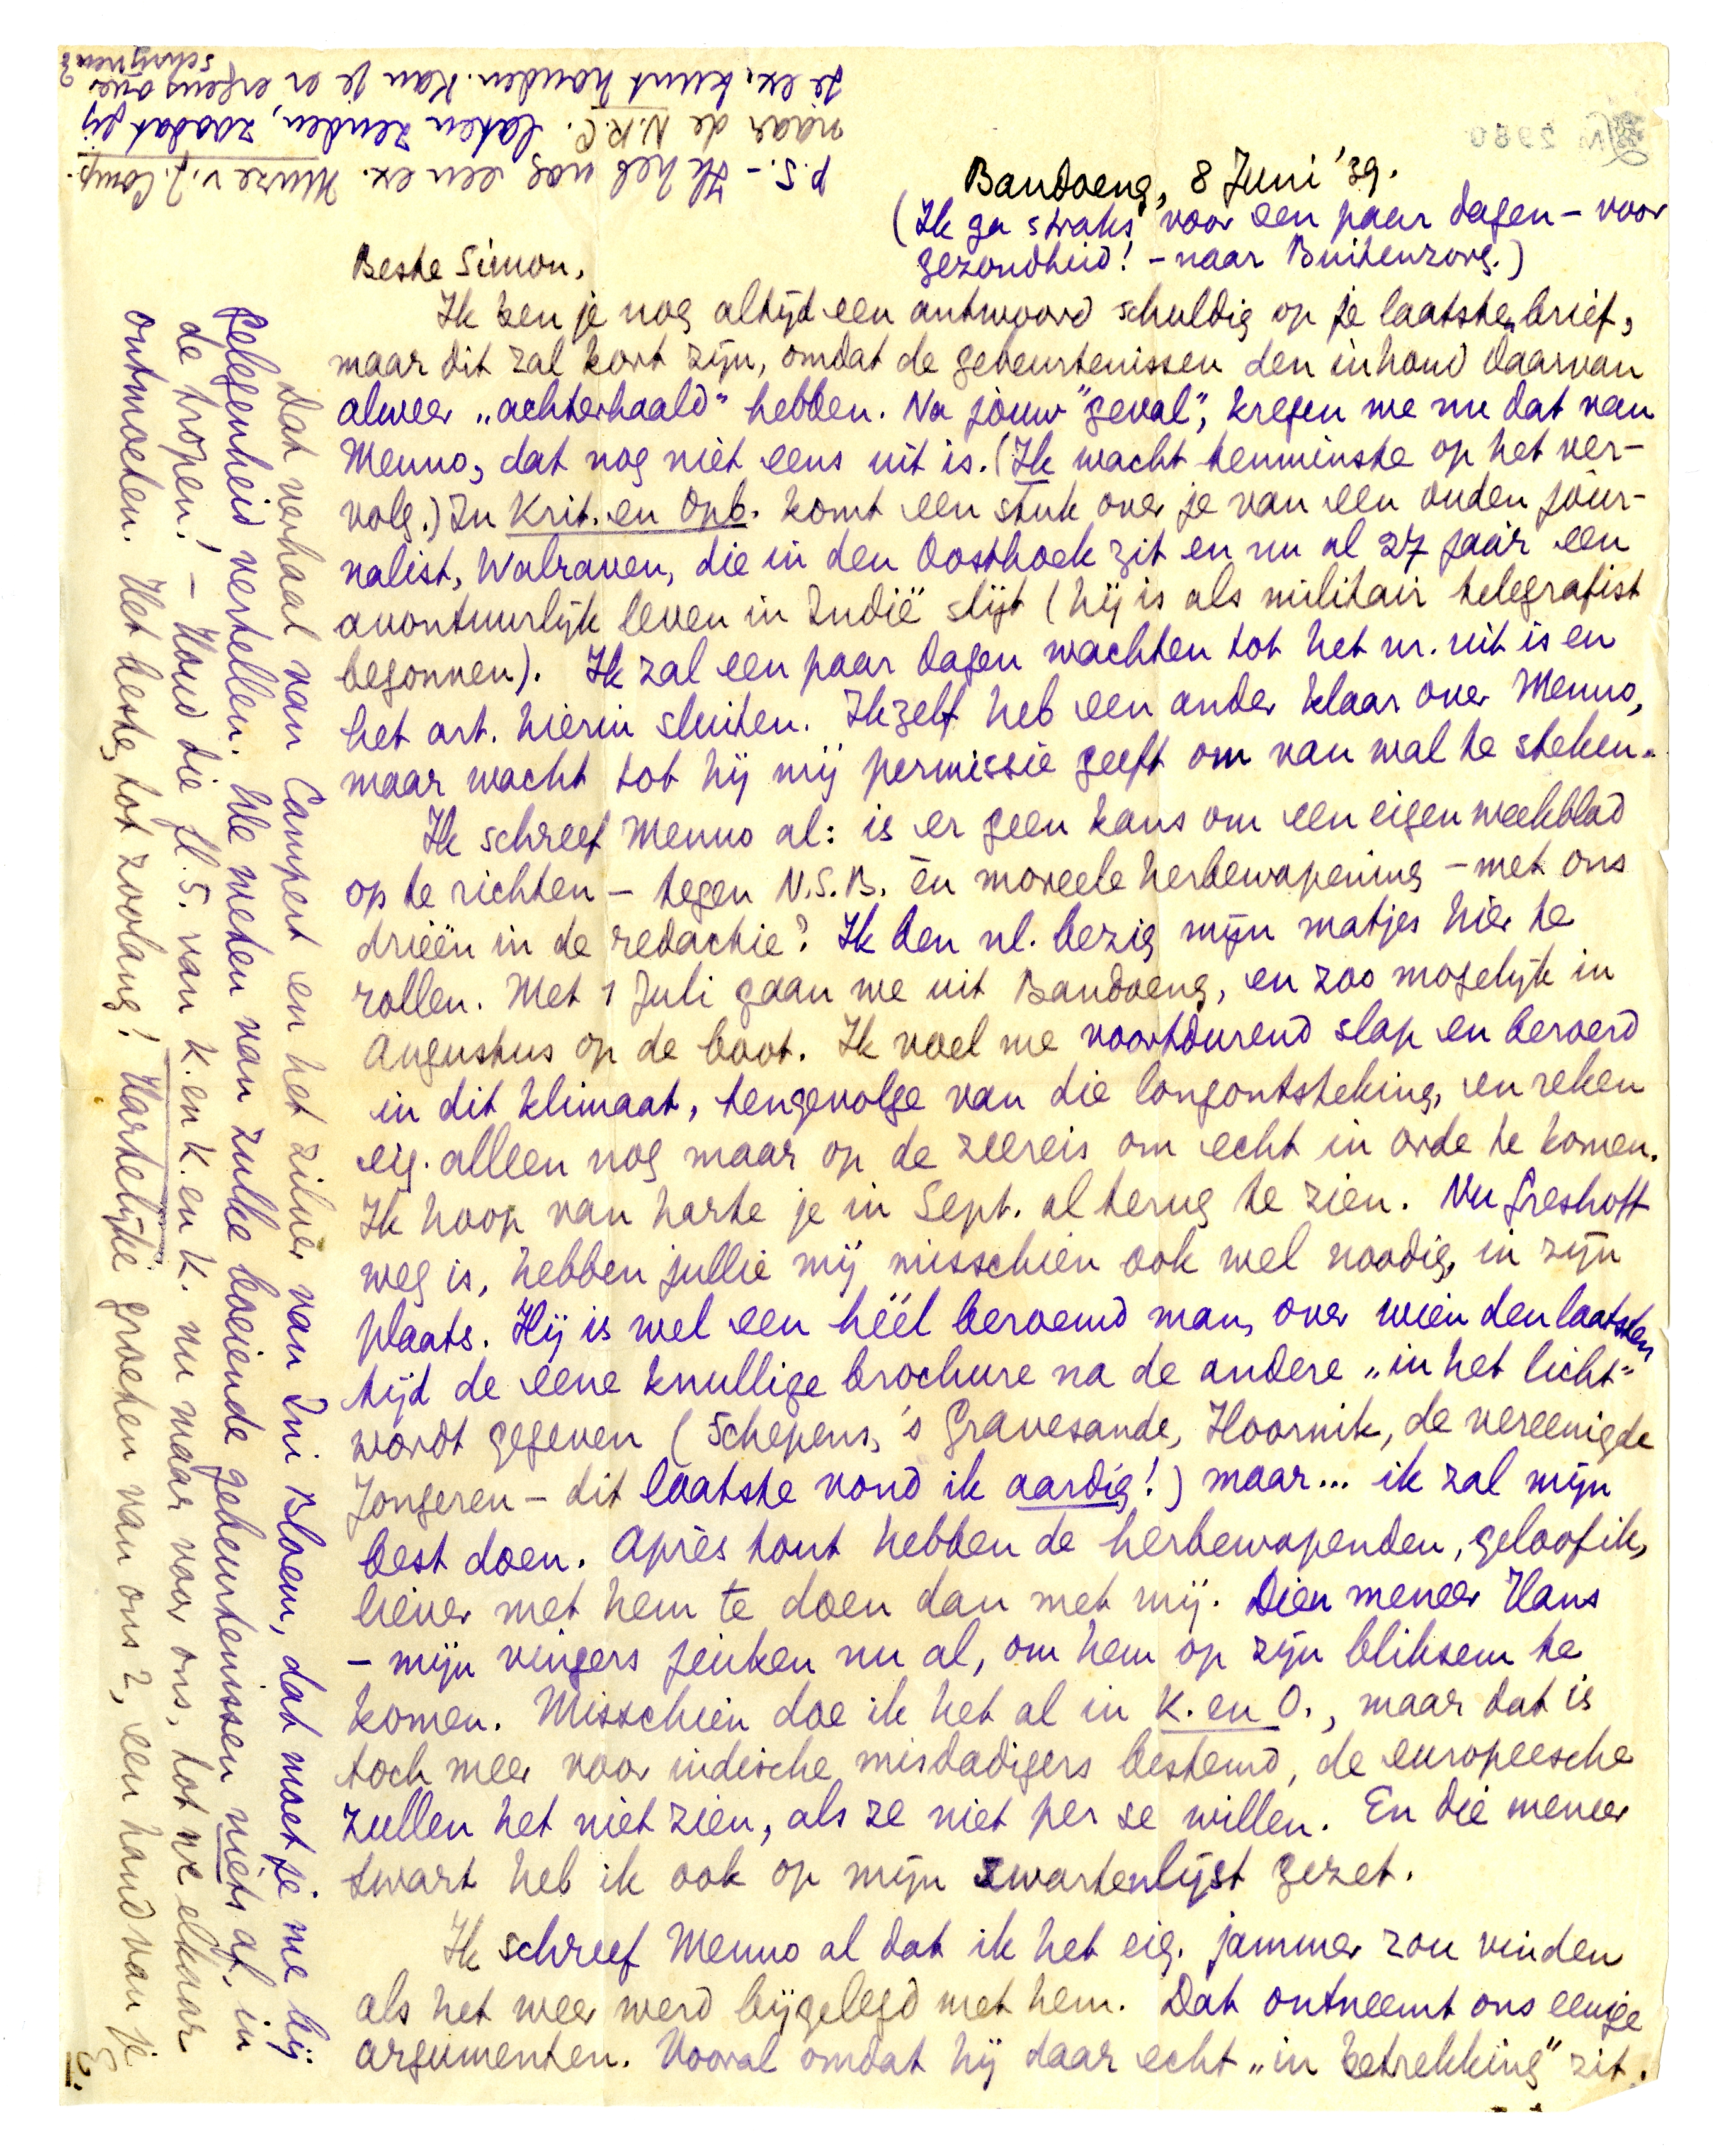 Bandoeng, 8 Juni '39.
(Ik ga straks voor een paar dagen – voor
gezondheid! – naar Buitenzorg.)
Beste Simon,
Ik ben je nog altijd een antwoord schuldig op je laatste brief,
maar dit zal kort zijn, omdat de gebeurtenissen den inhoud daarvan
alweer „achterhaald" hebben. Na jouw "geval", kregen we nu dat van
Menno, dat nog niet eens uit is. (Ik wacht tenminste op het ver-
volg.) In Krit. en Opb. komt een stuk over je van een ouden jour-
nalist, Walraven, die in den Oosthoek zit en nu al 27 jaar een
avontuurlijk leven in Indië slijt (hij is als militair telegrafist
begonnen). Ik zal een paar dagen wachten tot het nr. uit is en
het art. hierin sluiten. Ikzelf heb een ander klaar over Menno,
maar wacht tot hij mij permissie geeft om van wal te steken.
Ik schreef Menno al: is er geen kans om een eigen weekblad
op te richten – tegen N.S.B. èn moreele herbewapening – met ons
drieën in de redactie? Ik ben nl. bezig mijn matjes hier te
rollen. Met 1 Juli gaan we uit Bandoeng, en zoo mogelijk in
Augustus op de boot. Ik voel me voortdurend slap en beroerd
in dit klimaat, tengevolge van die longontsteking, en reken
eig. alleen nog maar op de zeereis om echt in orde te komen.
Ik hoop van harte je in Sept. al terug te zien. Nu Greshoff
weg is, hebben jullie mij misschien ook wel noodig, in zijn
plaats. Hij is wel een héél beroemd man, over wien den laatsten
tijd de eene knullige brochure na de andere „in het licht"
wordt gegeven (Schepens, 's Gravesande, Hoornik, de vereenigde
Jongeren – dit laatste vond ik aardig!) maar... ik zal mijn
best doen. Après tout hebben de herbewapenden, geloof ik,
liever met hem te doen dan met mij. Dien meneer Hans
– mijn vingers jeuken nu al, om hem op zijn bliksem te
komen. Misschien doe ik het al in K. en O., maar dat is
toch meer voor indische misdadigers bestemd, de europeesche
zullen het niet zien, als ze niet per se willen. En die meneer
Zwart heb ik ook op mijn zwartenlijst gezet.
Ik schreef Menno al dat ik het eig. jammer zou vinden
als het weer werd bijgelegd met hem. Dat ontneemt ons eenige
argumenten. Vooral omdat hij daar echt „in betrekking" zit.
Dat verhaal van Campert en het zilver van Ini Bloem, dat moet je me bij
gelegenheid vertellen. We weten van zulke boeiende gebeurtenissen niets af, in
de tropen! – Houd die fl. 5. van K. en K. en K. nu maar voor ons, tot we elkaar
ontmoeten. Het beste, tot zoolang! Hartelijke groeten van ons 2, een hand van je
E.
P.S. – Ik heb nog een ex. Muze v. J. Comp.
naar de N.R.C. laten zenden, zoodat jij
je ex. kunt houden. Kan je er ergens over
schrijven?
2980